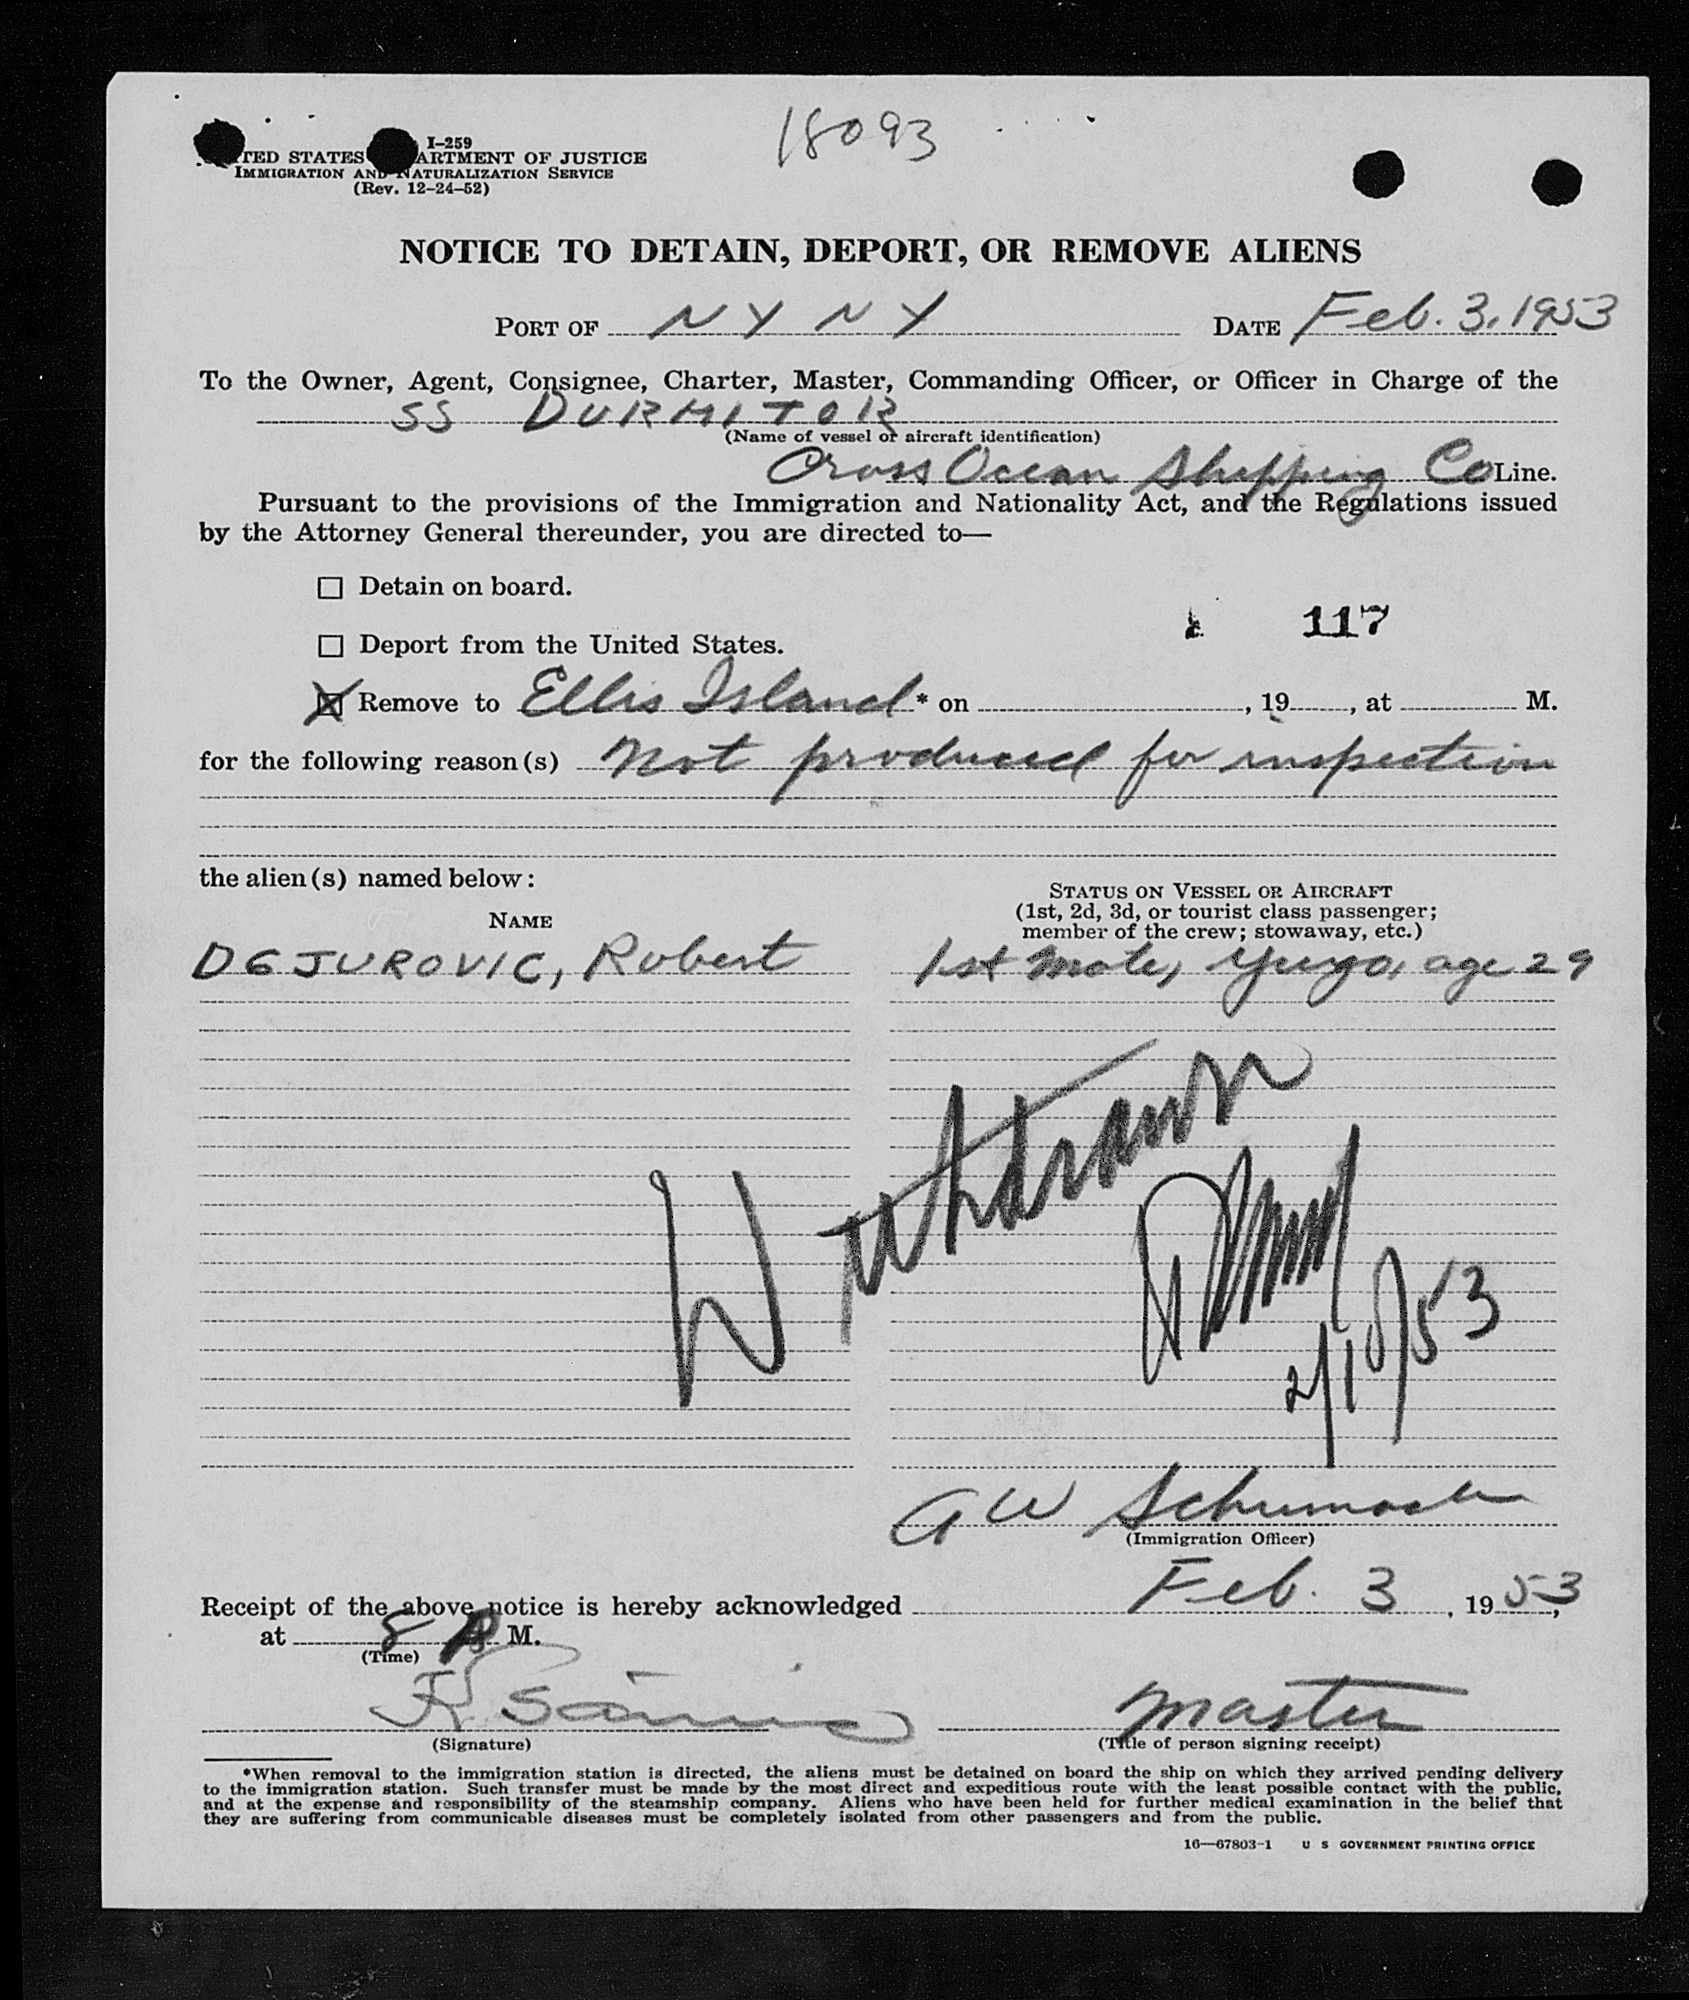 18093
I-259
UNITED STATES DEPARTMENT OF JUSTICE
IMMIGRATION AND NATURALIZATION SERVICE
(Rev. 12-24-52)
NOTICE TO DETAIN, DEPORT, OR REMOVE ALIENS
PORT OF N Y N Y DATE Feb. 3, 1953
To the Owner, Agent, Consignee, Charter, Master, Commanding Officer, or Officer in Charge of the
SS DURMITOR
(Name of vessel or aircraft identification)
Cross Ocean Shipping Co Line.
Pursuant to the provisions of the Immigration and Nationality Act, and the Regulations issued
by the Attorney General thereunder, you are directed to—
☐ Detain on board.
117
☐ Deport from the United States.
☒ Remove to Ellis Island * on , 19 , at M.
for the following reason(s) Not produced for inspection
the alien(s) named below:
STATUS ON VESSEL OR AIRCRAFT
(1st, 2d, 3d, or tourist class passenger;
member of the crew; stowaway, etc.)
NAME
DGJUROVIC, Robert 1st Mate, Yugo, age 29
Withdrawn
2/10/53
A W Schumacher
(Immigration Officer)
Receipt of the above notice is hereby acknowledged Feb. 3, 1953,
at 8 P M.
(Time)
Master
(Signature) (Title of person signing receipt)
*When removal to the immigration station is directed, the aliens must be detained on board the ship on which they arrived pending delivery
to the immigration station. Such transfer must be made by the most direct and expeditious route with the least possible contact with the public,
and at the expense and responsibility of the steamship company. Aliens who have been held for further medical examination in the belief that
they are suffering from communicable diseases must be completely isolated from other passengers and from the public.
16—67803-1 U S GOVERNMENT PRINTING OFFICE